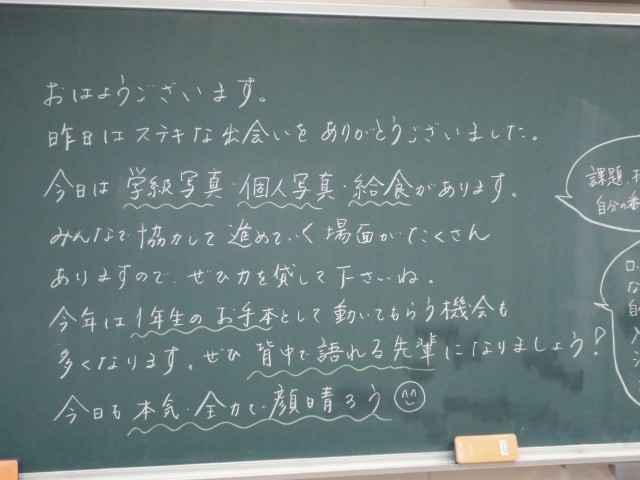 おはようございます。
昨日はステキな出会いをありがとうございました。
今日は学級写真・個人写真・給食があります。
みんなで協力して進めていく場面がたくさん
ありますので、ぜひ力を貸して下さいね。
今年は1年生のお手本として動いてもらう機会も
多くなります。ぜひ背中で語れる先輩になりましょう!
今日も本気・全力で顔晴ろう
課題、
自分の番